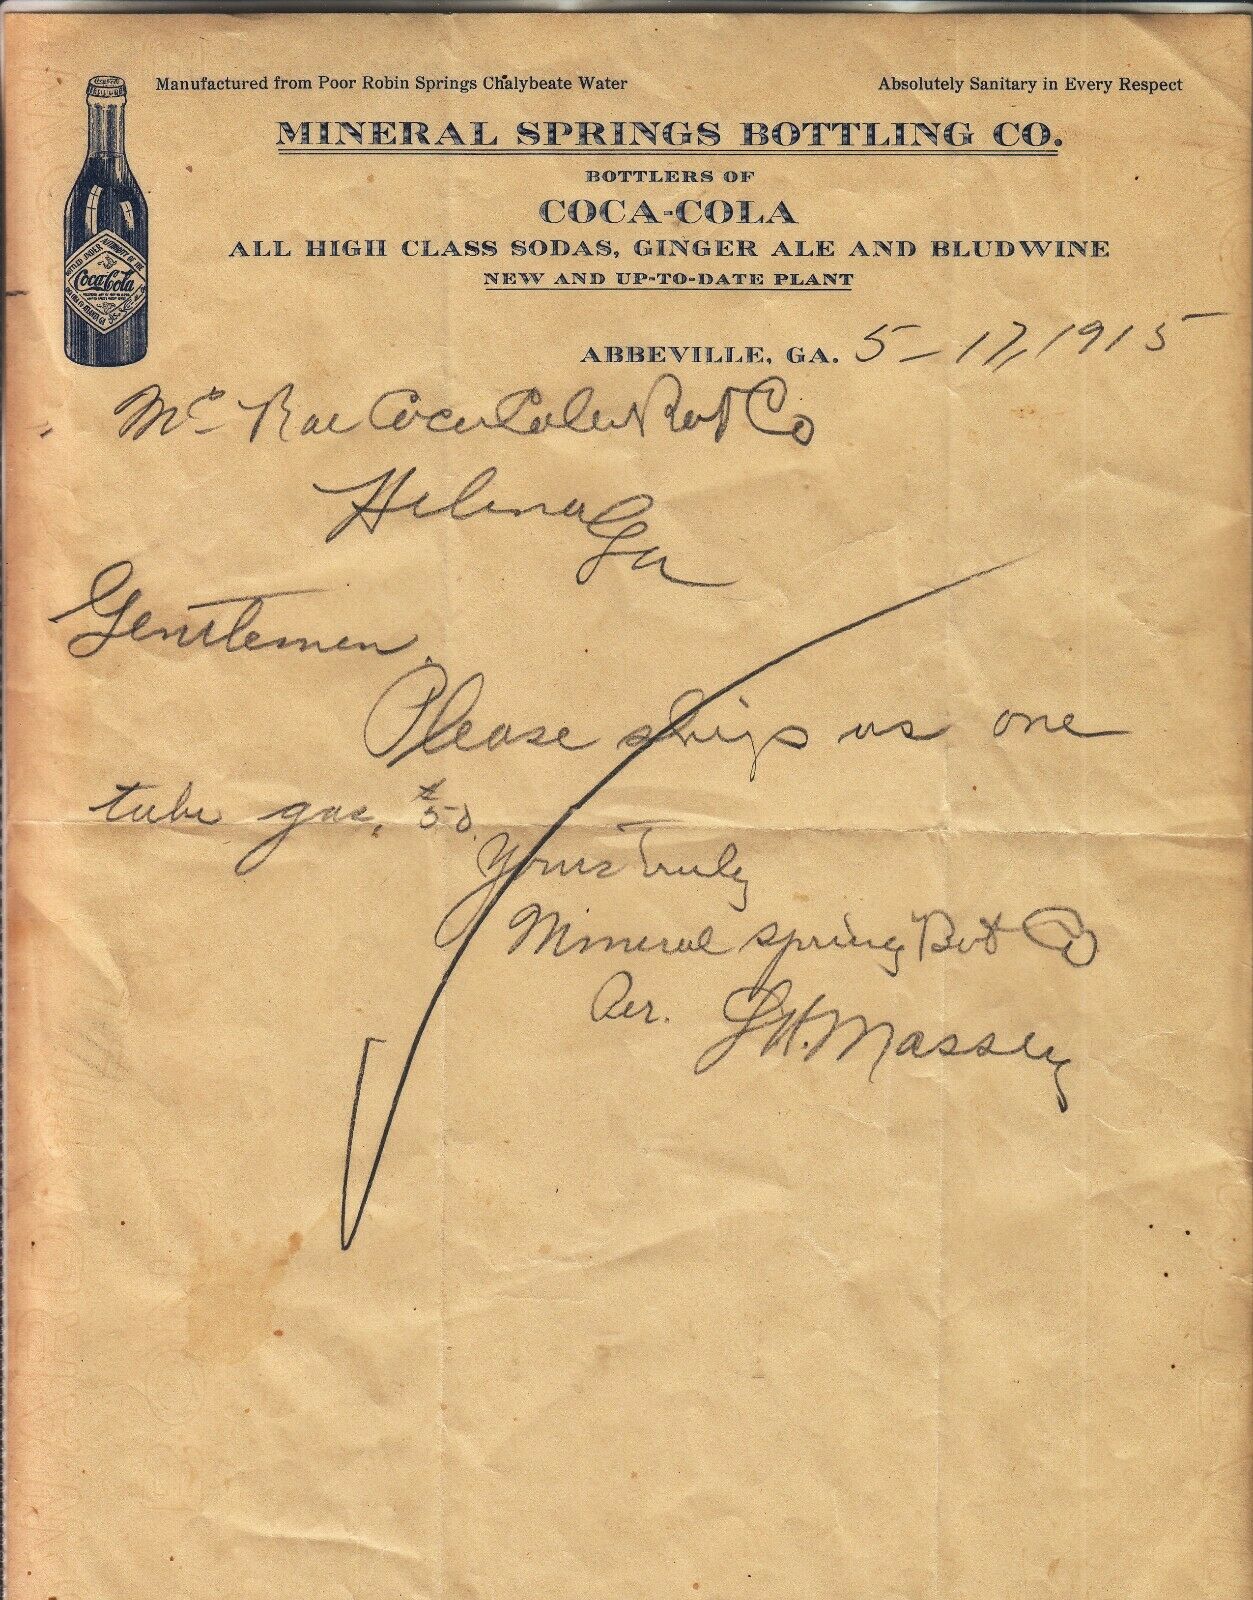 Manufactured from Poor Robin Springs Chalybeate Water
Absolutely Sanitary in Every Respect
MINERAL SPRINGS BOTTLING CO.
BOTTLERS OF
COCA-COLA
ALL HIGH CLASS SODAS, GINGER ALE AND BLUDWINE
NEW AND UP-TO-DATE PLANT
Coca-Cola
ABBEVILLE, GA. 5-17, 1915
Mc Rae Coca Cola Bot Co
Helena Ga
Gentlemen.
Please ship us one
tube gas, #50.
Yours Truly
Mineral Spring Bot Co
Per. J H. Massey